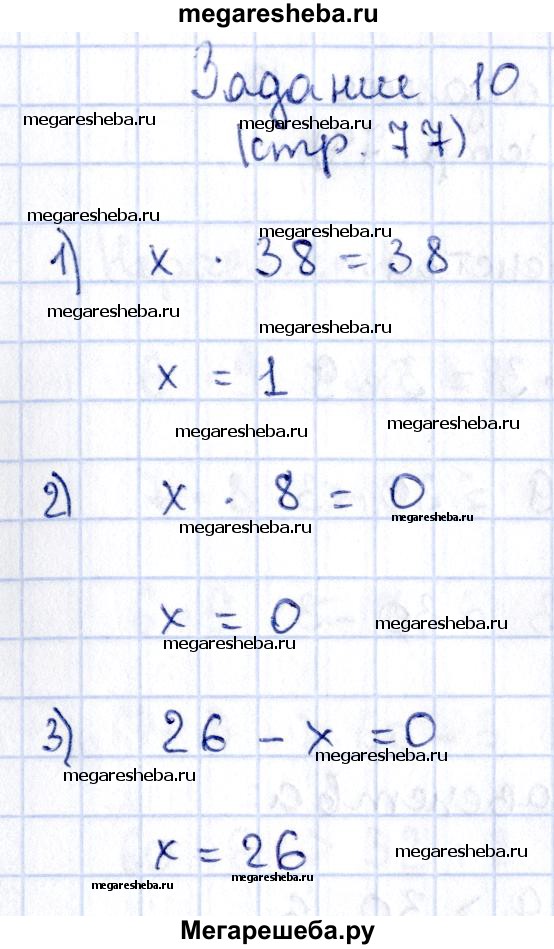 megaresheba.ru
Задание 10
megaresheba.ru megaresheba.ru
(стр. 77)
megaresheba.ru megaresheba.ru
1) x · 38 = 38
megaresheba.ru megaresheba.ru
x = 1
megaresheba.ru megaresheba.ru
2) x · 8 = 0
megaresheba.ru megaresheba.ru
x = 0
megaresheba.ru megaresheba.ru
3) 26 - x = 0
megaresheba.ru megaresheba.ru
x = 26
megaresheba.ru megaresheba.ru megaresheba.ru
Мегарешеба.ру